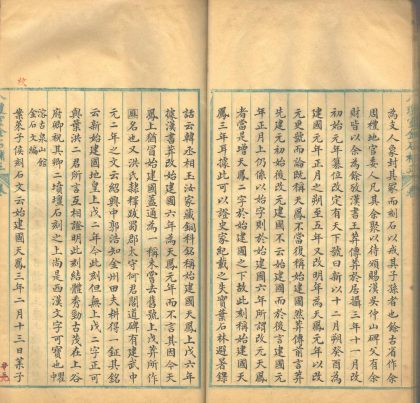 為支人食封其眾而刻石以戒其子孫者也餘古省作余
周禮地官委人凡其余聚以待頒賜漢吳仲山碑父有余
財皆以余為餘攷漢書王莽傳莽於居攝三年十一月改
初始元年篡位改定有天下號曰新以十二月朔癸酉為
建國元年正月之朔至五年又改明年為天鳳元年以改
元更號而論既稱天鳳不當復稱始建國然莽傳前言莽
先建元初始後改元建國不云始建國而於後言建國元
年正月上仍係以始字則於始建國六年所謂改元天鳳
者當是增天鳳二字於始建國之下故此刻稱始建國天
鳳三年耳據此可以證史家紀載之失實葉石林避暑錄
話云韓丞相玉汝家藏銅枓銘稱始建國天鳳上戊六年
據漢書莽改始建國六年為天鳳元年而不言其因今天
鳳上猶冒始建國蓋通為一稱未嘗去舊號上戊莽所作
厤名也又洪氏隸釋跋蜀郡太守何君閣道碑有建武中
元二年之文云紹興中郭浩知金州田夫耕得一鉦其銘
云新始建國地皇上戊二年今此刻但無上戊二字正可
與葉洪二君所言互相證明此刻結體秀勁古茂在上谷
府卿祝其卿二墳壇石刻之上尚是西漢文字可寶也瞿
溶古泉山館
金石文編
案萊子侯刻石文云始建國天鳳三年二月十三日萊子